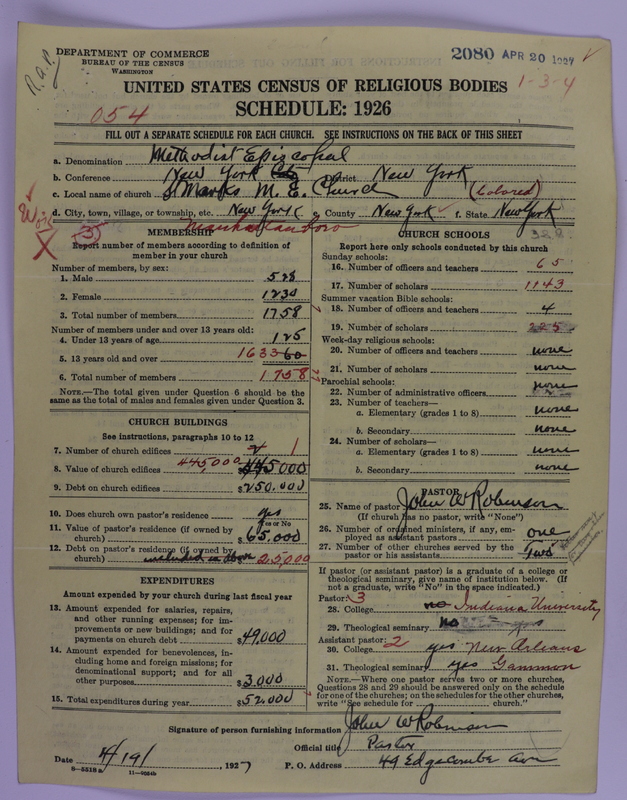 DEPARTMENT OF COMMERCE
BUREAU OF THE CENSUS
WASHINGTON
R.a.P.
2080 APR 20 1927
1-3-4
UNITED STATES CENSUS OF RELIGIOUS BODIES
SCHEDULE: 1926
054
FILL OUT A SEPARATE SCHEDULE FOR EACH CHURCH. SEE INSTRUCTIONS ON THE BACK OF THIS SHEET
a. Denomination Methodist Episcopal
b. Conference New York City District New York
c. Local name of church St Marks M. E. Church (Colored)
d. City, town, village, or township, etc. New York e. County New York f. State New York
Manhattan Boro
(3)
X
328
MEMBERSHIP
Report number of members according to definition of
member in your church
Number of members, by sex:
1. Male 528
2. Female 1230
3. Total number of members 1758
Number of members under and over 13 years old:
4. Under 13 years of age 125
5. 13 years old and over 1633
6. Total number of members 1758
NOTE.—The total given under Question 6 should be
same as the total of males and females given under Question 3.
CHURCH BUILDINGS
See instructions, paragraphs 10 to 12
7. Number of church edifices 1
8. Value of church edifices 445,000 $445000
9. Debt on church edifices $250.000
10. Does church own pastor's residence? yes
Yes or No
11. Value of pastor's residence (if owned by
church) $65,000
12. Debt on pastor's residence (if owned by
church) included in above 25,000
EXPENDITURES
Amount expended by your church during last fiscal year
13. Amount expended for salaries, repairs,
and other running expenses; for im-
provements or new buildings; and for
payments on church debt $49,000
14. Amount expended for benevolences, in-
cluding home and foreign missions; for
denominational support; and for all
other purposes $3.000
15. Total expenditures during year $52.000
CHURCH SCHOOLS
Report here only schools conducted by this church
Sunday schools:
16. Number of officers and teachers 65
17. Number of scholars 1143
Summer vacation Bible schools:
18. Number of officers and teachers 4
19. Number of scholars 225
Week-day religious schools:
20. Number of officers and teachers none
21. Number of scholars none
Parochial schools:
22. Number of administrative officers none
23. Number of teachers—
a. Elementary (grades 1 to 8) none
b. Secondary none
24. Number of scholars—
a. Elementary (grades 1 to 8) none
b. Secondary none
PASTOR
25. Name of pastor John W Robinson
(If church has no pastor, write "None")
26. Number of ordained ministers, if any, em-
ployed as assistant pastors one
27. Number of other churches served by the
pastor or his assistants Two
If pastor (or assistant pastor) is a graduate of a college or
theological seminary, give name of institution below. (If
not a graduate, write "No" in the space indicated.)
Pastor: 3
28. College no Indiana University
29. Theological seminary no yes
Assistant pastor: 2
30. College yes New Orleans
31. Theological seminary yes Gammon
NOTE.—Where one pastor serves two or more churches,
Questions 28 and 29 should be answered only on the schedule
for one of the churches; on the schedules for the other churches,
write "See schedule for church."
Signature of person furnishing information John W Robinson
Official title Pastor
Date 4/19/, 1927 P. O. Address 49 Edgecombe Ave
8—5518a 11—9024b